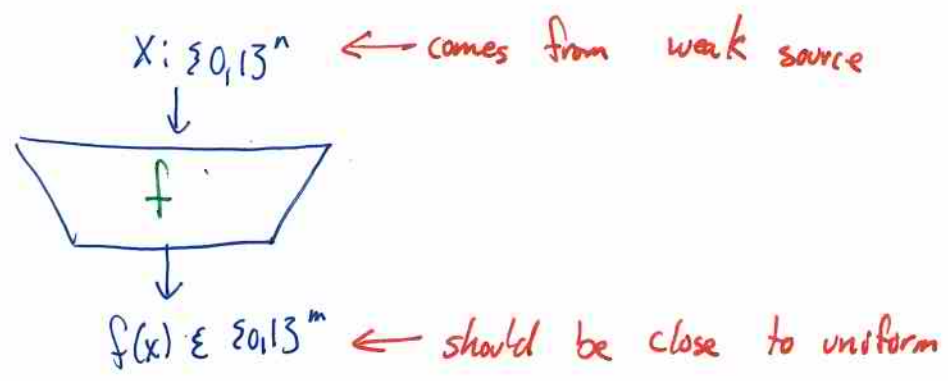 X: {0,1}^n ← comes from weak source
f
f(x) ∈ {0,1}^m ← should be close to uniform